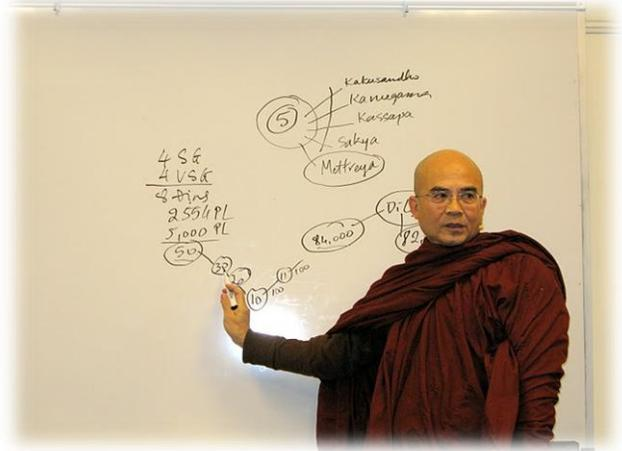 5
Kakusandho
Kanugamna
Kassapa
Sakya
Mettreya
4 SG
4 VSG
8 dins
2554 PL
5,000 PL
50
30
20
10 100
11 100
84,000
Di
82,